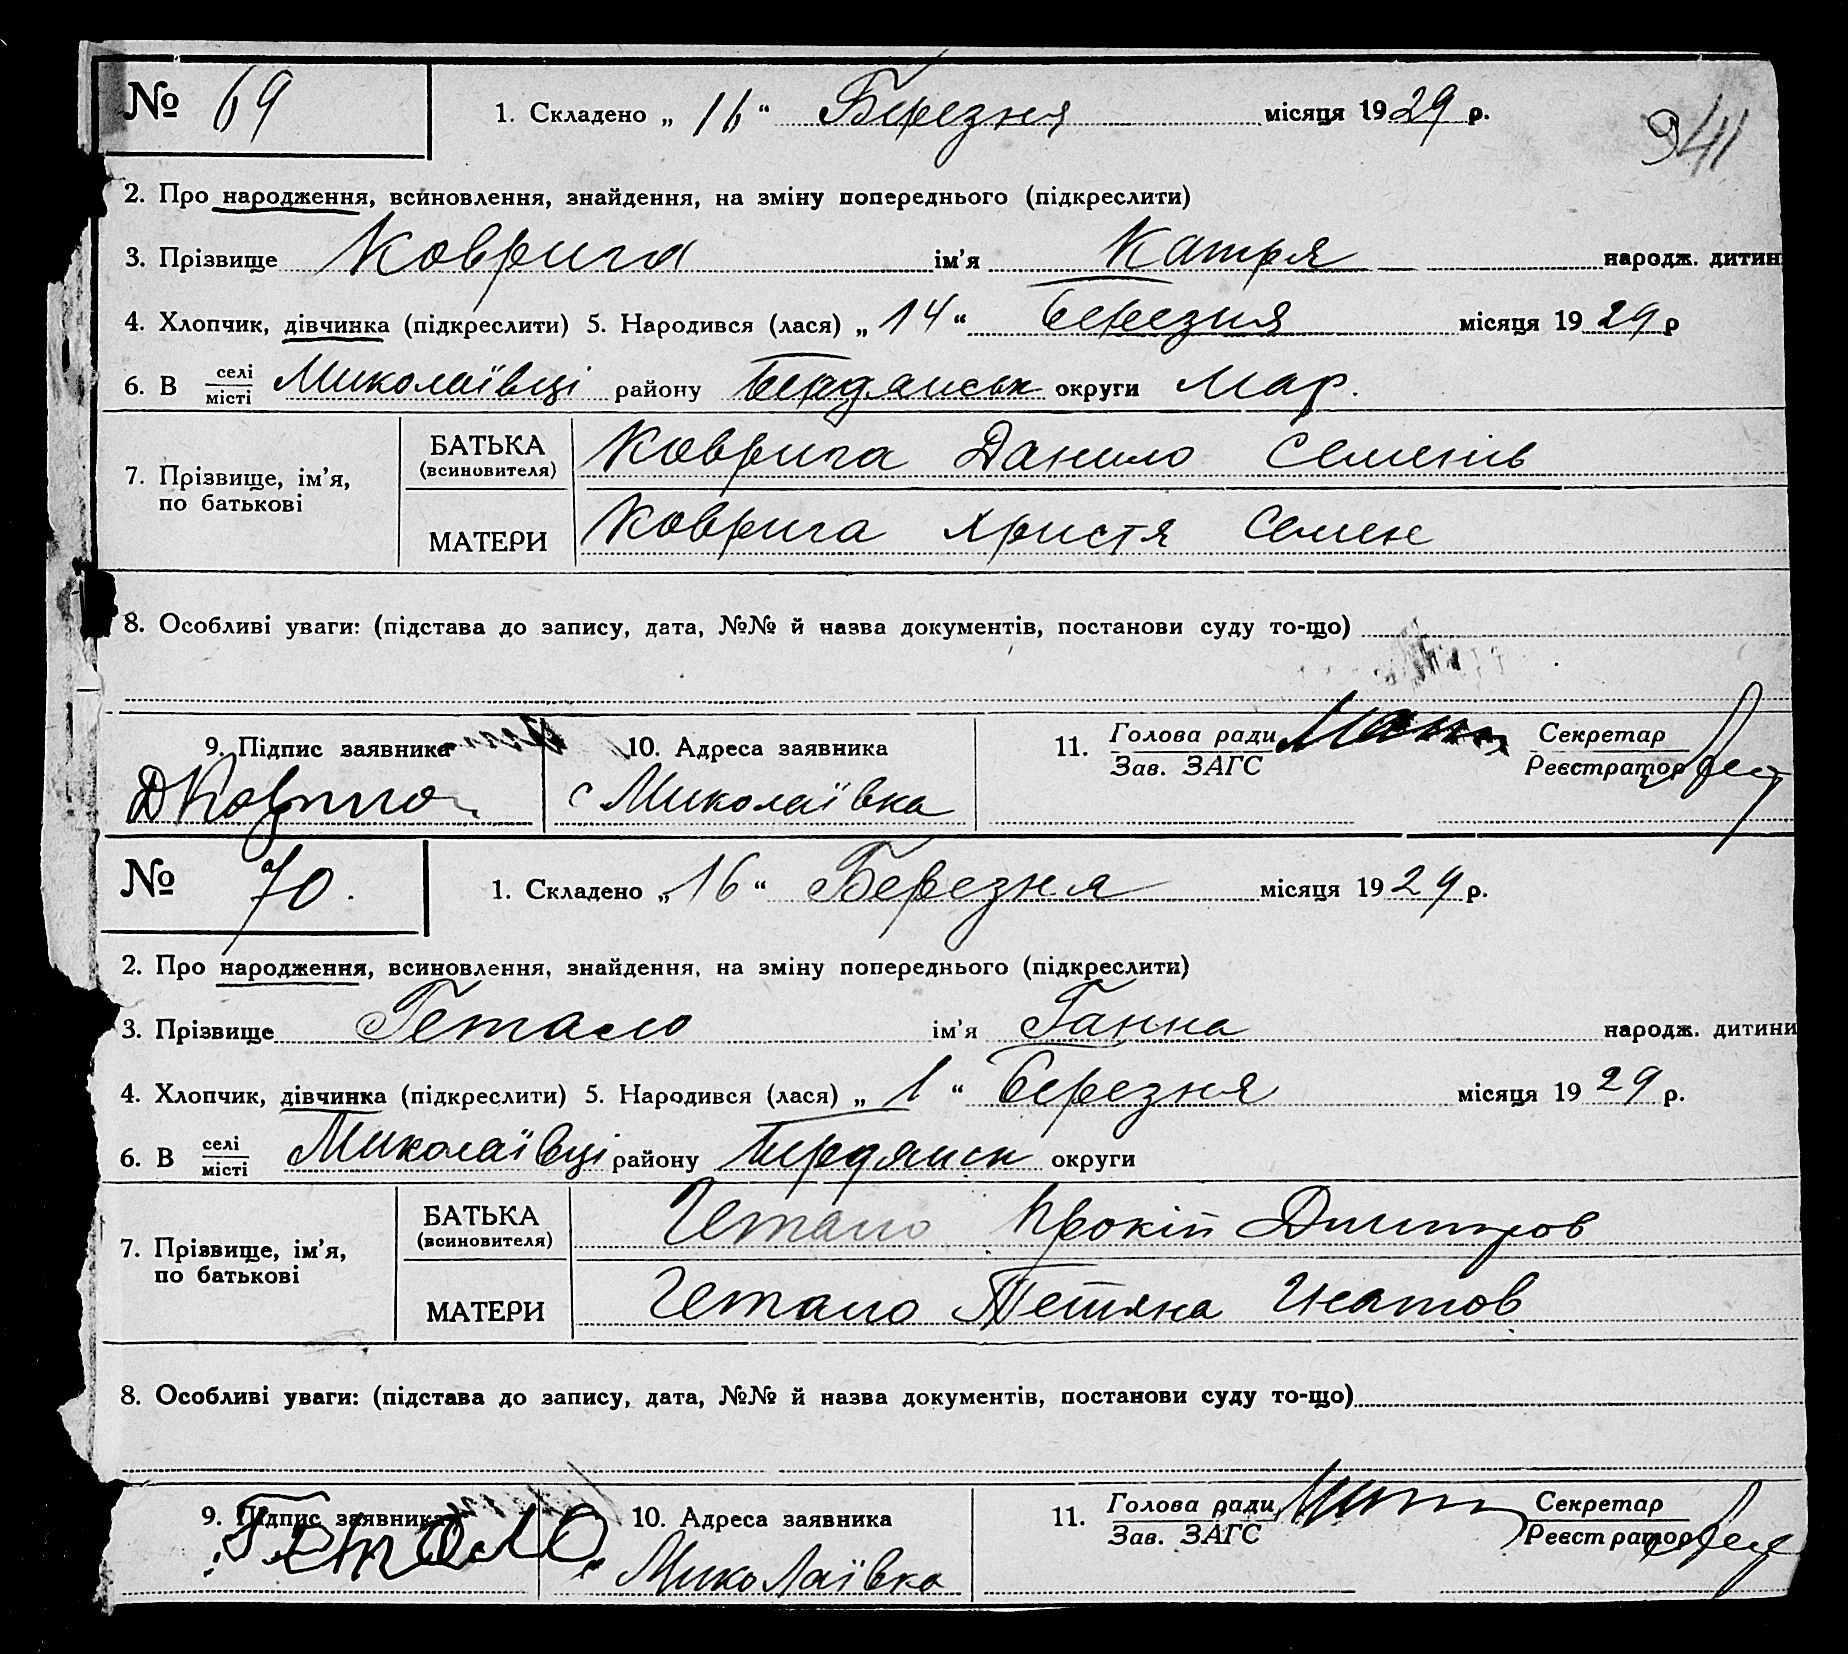 № 69 1. Складено „ 16 “ Березня місяця 1929 р.
941
2. Про народження, всиновлення, знайдення, на зміну попереднього (підкреслити)
3. Прізвище Коврига ім’я Катря народж. дитин
4. Хлопчик, дівчинка (підкреслити) 5. Народився (лася) „ 14 “ березня місяця 1929 р
6. В селі/місті Миколаївці району Бердянськ округи Мар.
7. Прізвище, ім’я, по батькові
БАТЬКА (всиновителя) Коврига Данило Семенів
МАТЕРИ Коврига Христя Семен
8. Особливі уваги: (підстава до запису, дата, №№ й назва документів, постанови суду то-що)
9. Підпис заявника 10. Адреса заявника 11. Голова ради/Зав. ЗАГС Секретар/Реєстратор
ДКоврига с Миколаївка
№ 70. 1. Складено „ 16 “ Березня місяця 1929 р.
2. Про народження, всиновлення, знайдення, на зміну попереднього (підкреслити)
3. Прізвище Гетало ім’я Ганна народж. дитини
4. Хлопчик, дівчинка (підкреслити) 5. Народився (лася) „ 1 “ березня місяця 1929 р.
6. В селі/місті Миколаївці району Бердянськ округи
7. Прізвище, ім’я, по батькові
БАТЬКА (всиновителя) Гетало Прокіп Дмитров
МАТЕРИ Гетало Тетяна Гнатов
8. Особливі уваги: (підстава до запису, дата, №№ й назва документів, постанови суду то-що)
9. Підпис заявника 10. Адреса заявника 11. Голова ради/Зав. ЗАГС Секретар/Реєстратор
Гетало с. Миколаївка